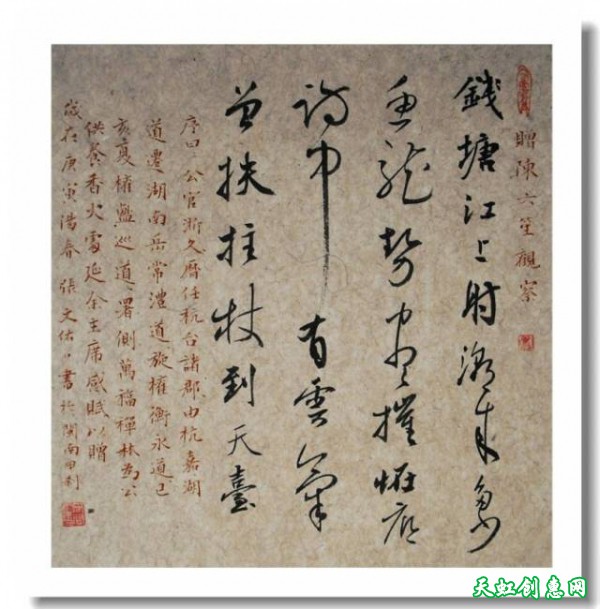 贈陳六笙觀察
錢塘江上射潮來多少
魚龍勢盡摧怪底
詩中有雲氣
曾扶拄杖到天臺
序曰公官浙久曆任杭台諸郡由杭嘉湖
道遷湖南岳常澧道旋權衡永道己
亥夏權鹽巡道署側萬福禪林為公
供養香火處延余主席感賦以贈
歲在庚寅浩春 張文佑書於閩南
天虹创意网